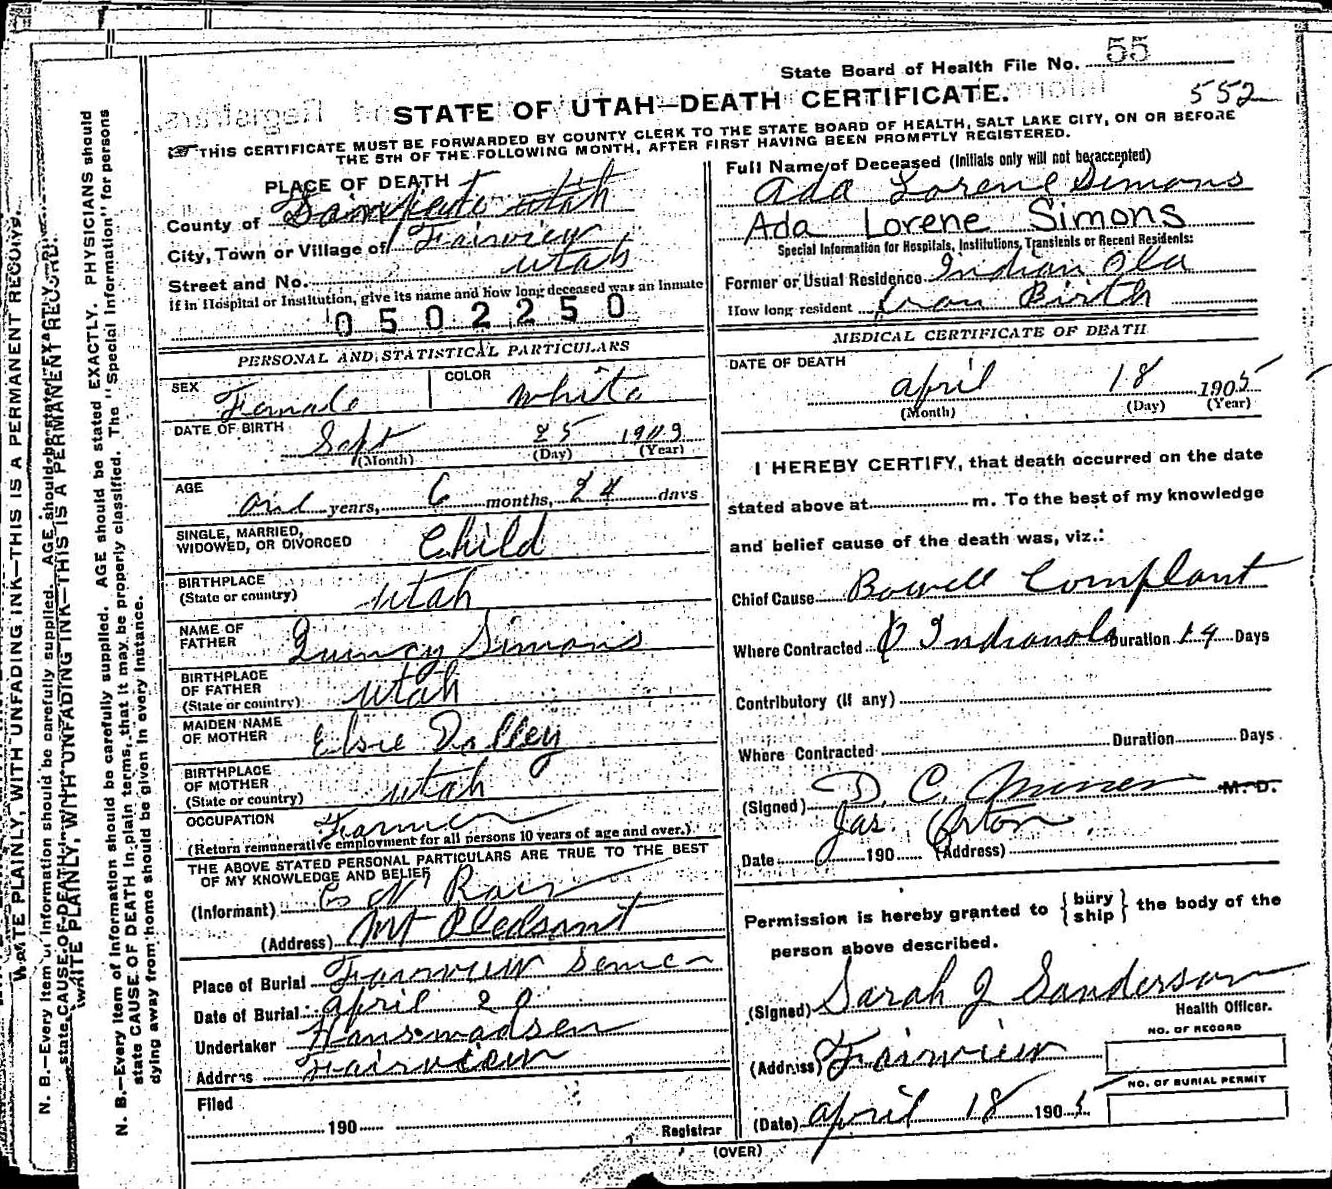 State Board of Health File No. 55
STATE OF UTAH—DEATH CERTIFICATE.
552
THIS CERTIFICATE MUST BE FORWARDED BY COUNTY CLERK TO THE STATE BOARD OF HEALTH, SALT LAKE CITY, ON OR BEFORE
THE 5TH OF THE FOLLOWING MONTH, AFTER FIRST HAVING BEEN PROMPTLY REGISTERED.
PLACE OF DEATH
County of Utah
City, Town or Village of Fairview
Street and No. Utah
If in Hospital or Institution, give its name and how long deceased was an Inmate
0502250
PERSONAL AND STATISTICAL PARTICULARS
SEX Female COLOR White
DATE OF BIRTH Sept 25 1903
(Month) (Day) (Year)
AGE one years, 6 months, 24 days
SINGLE, MARRIED, WIDOWED, OR DIVORCED Child
BIRTHPLACE
(State or country) Utah
NAME OF FATHER Quincy Simons
BIRTHPLACE OF FATHER
(State or country) Utah
MAIDEN NAME OF MOTHER Elsie Dalley
BIRTHPLACE OF MOTHER
(State or country) Utah
OCCUPATION Farmer
(Return remunerative employment for all persons 10 years of age and over.)
THE ABOVE STATED PERSONAL PARTICULARS ARE TRUE TO THE BEST
OF MY KNOWLEDGE AND BELIEF
(Informant)
(Address) Mt Pleasant
Place of Burial Fairview
Date of Burial April 20
Undertaker Hans Madsen
Address Fairview
Filed
190
Registrar
Full Name of Deceased (Initials only will not be accepted)
Ada Lorene Simons
Ada Lorene Simons
Special Information for Hospitals, Institutions, Transients or Recent Residents:
Former or Usual Residence Indian Ola
How long resident from Birth
MEDICAL CERTIFICATE OF DEATH
DATE OF DEATH
April 18 1905
(Month) (Day) (Year)
I HEREBY CERTIFY, that death occurred on the date
stated above at m. To the best of my knowledge
and belief cause of the death was, viz.:
Chief Cause Bowell Complant
Where Contracted Indianola Duration 19 Days
Contributory (If any)
Where Contracted Duration Days
(Signed) D. C. M. D.
Jas. Orton
Date 190 (Address)
Permission is hereby granted to {bury ship} the body of the
person above described.
(Signed) Sarah J Sanderson
Health Officer.
(Address) Fairview
NO. OF RECORD
NO. OF BURIAL PERMIT
(Date) April 18 1905
(OVER)
WRITE PLAINLY, WITH UNFADING INK—THIS IS A PERMANENT RECORD.
N. B.—Every item of information should be carefully supplied. AGE should be stated EXACTLY. PHYSICIANS should
state CAUSE OF DEATH in plain terms, that it may be properly classified. The "Special Information" for persons
dying away from home should be given in every instance.